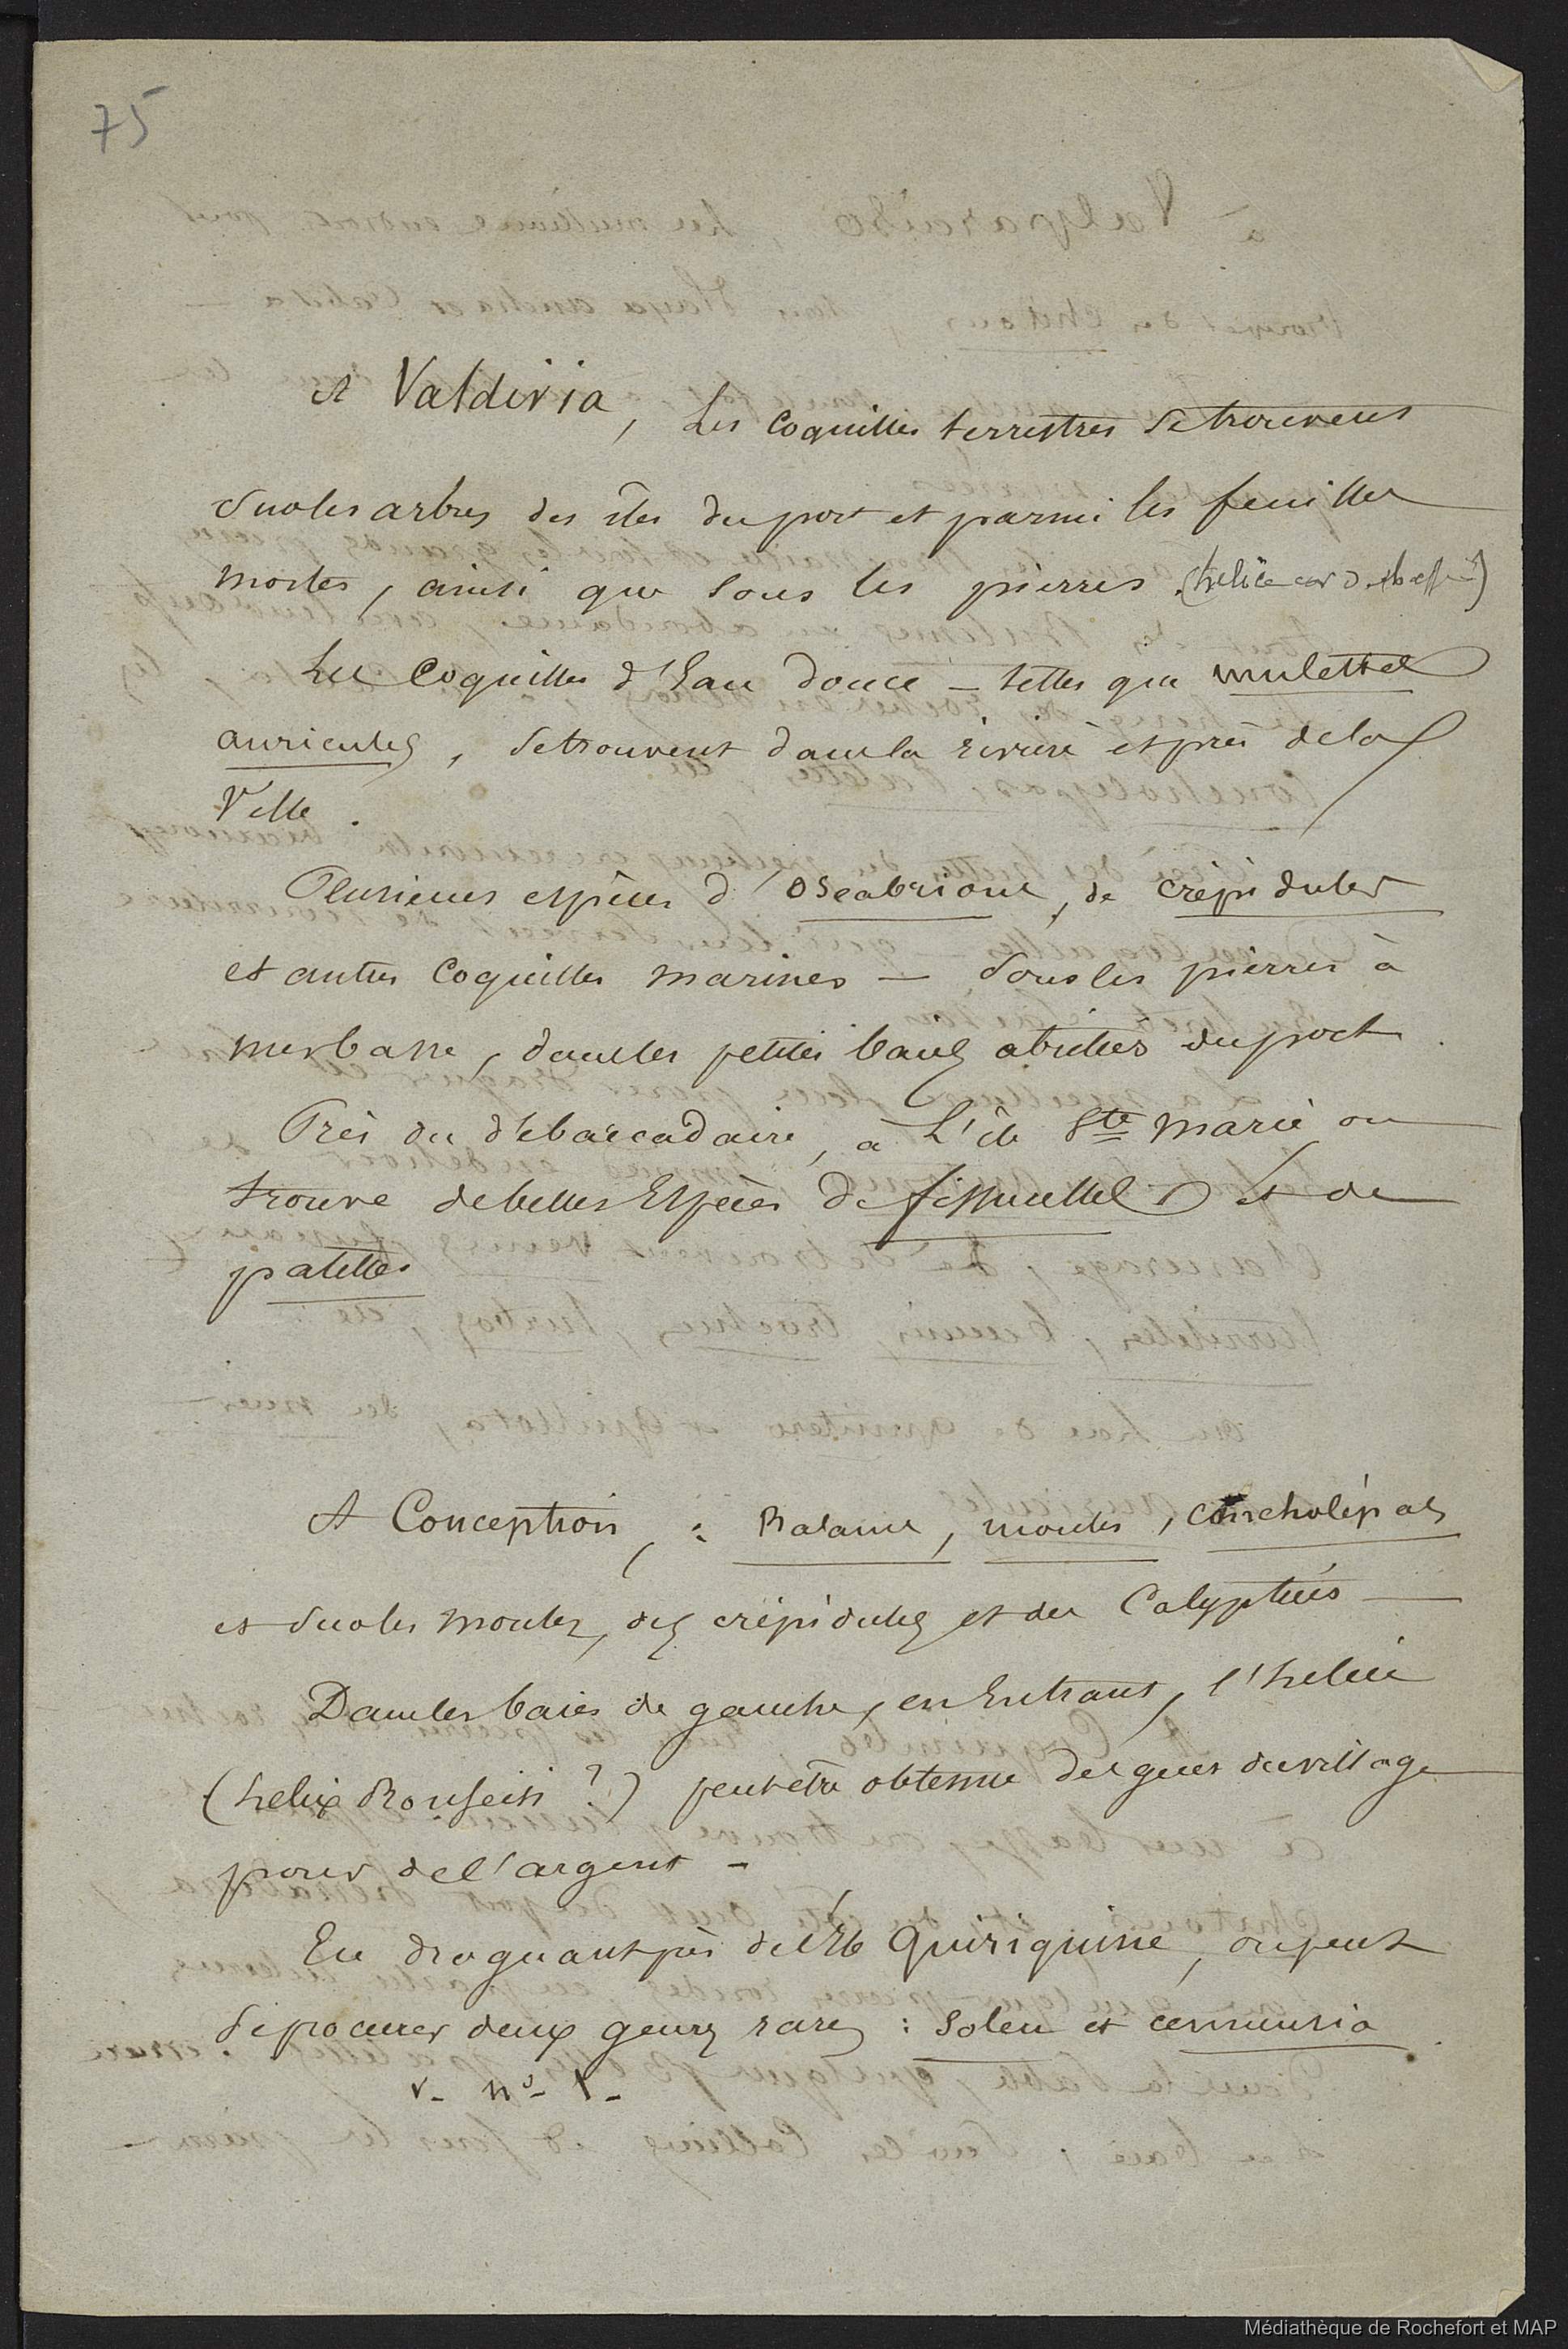 75
A Valdivia, Les Coquilles terrestres se trouvent
sur les arbres des îles du port et parmi les feuilles
mortes, ainsi que sous les pierres. (hélice
Les Coquilles d'Eau douce — telles que mulettes
auricules, se trouvent dans la rivière et près de la
Ville.
Plusieurs espèces d'oscabrions, de crépidules
et autres Coquilles marines — Sous les pierres à
mer basse, dans les petites baies abritées du port
Près du débarcadaire, à L'île Ste Marie, on
trouve de belles Espèces de fissurelles et de
patelles
A Conception, : Balanes, moules, concholépas
et sur les moules, des crépidules et des Calyptrées —
Dans les baies de gauche, en Entrant, l'hélice
(helix ?) peut être obtenue des gens du village
pour de l'argent -
En draguant près de l'île Quiriquine, on peut
se procurer deux genres rares : Solen et
v- no- 1-
Médiathèque de Rochefort et MAP